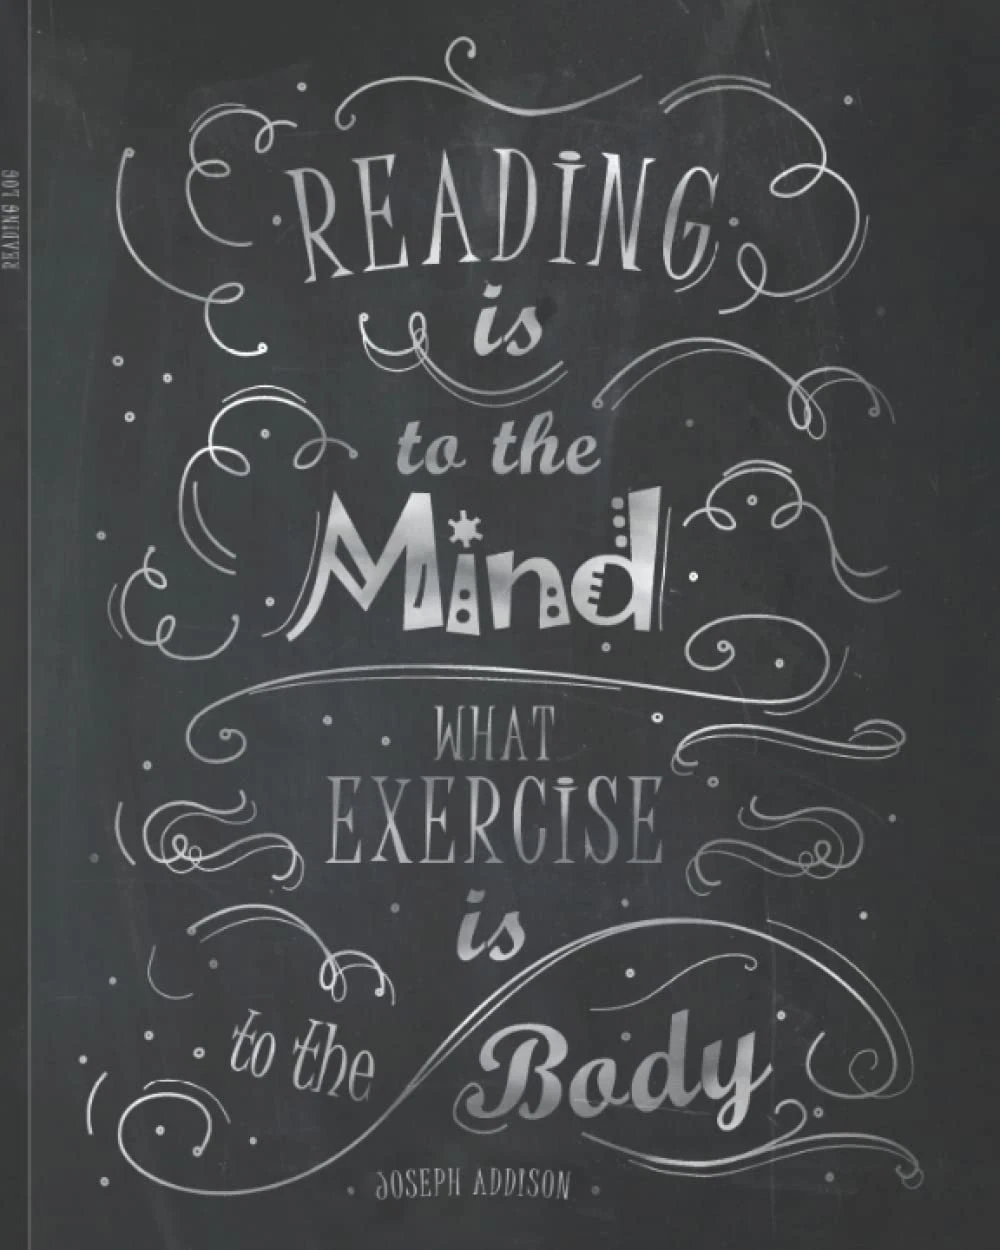 READING LOG
READING
is
to the
Mind
WHAT
EXERCISE
is
to the Body
JOSEPH ADDISON